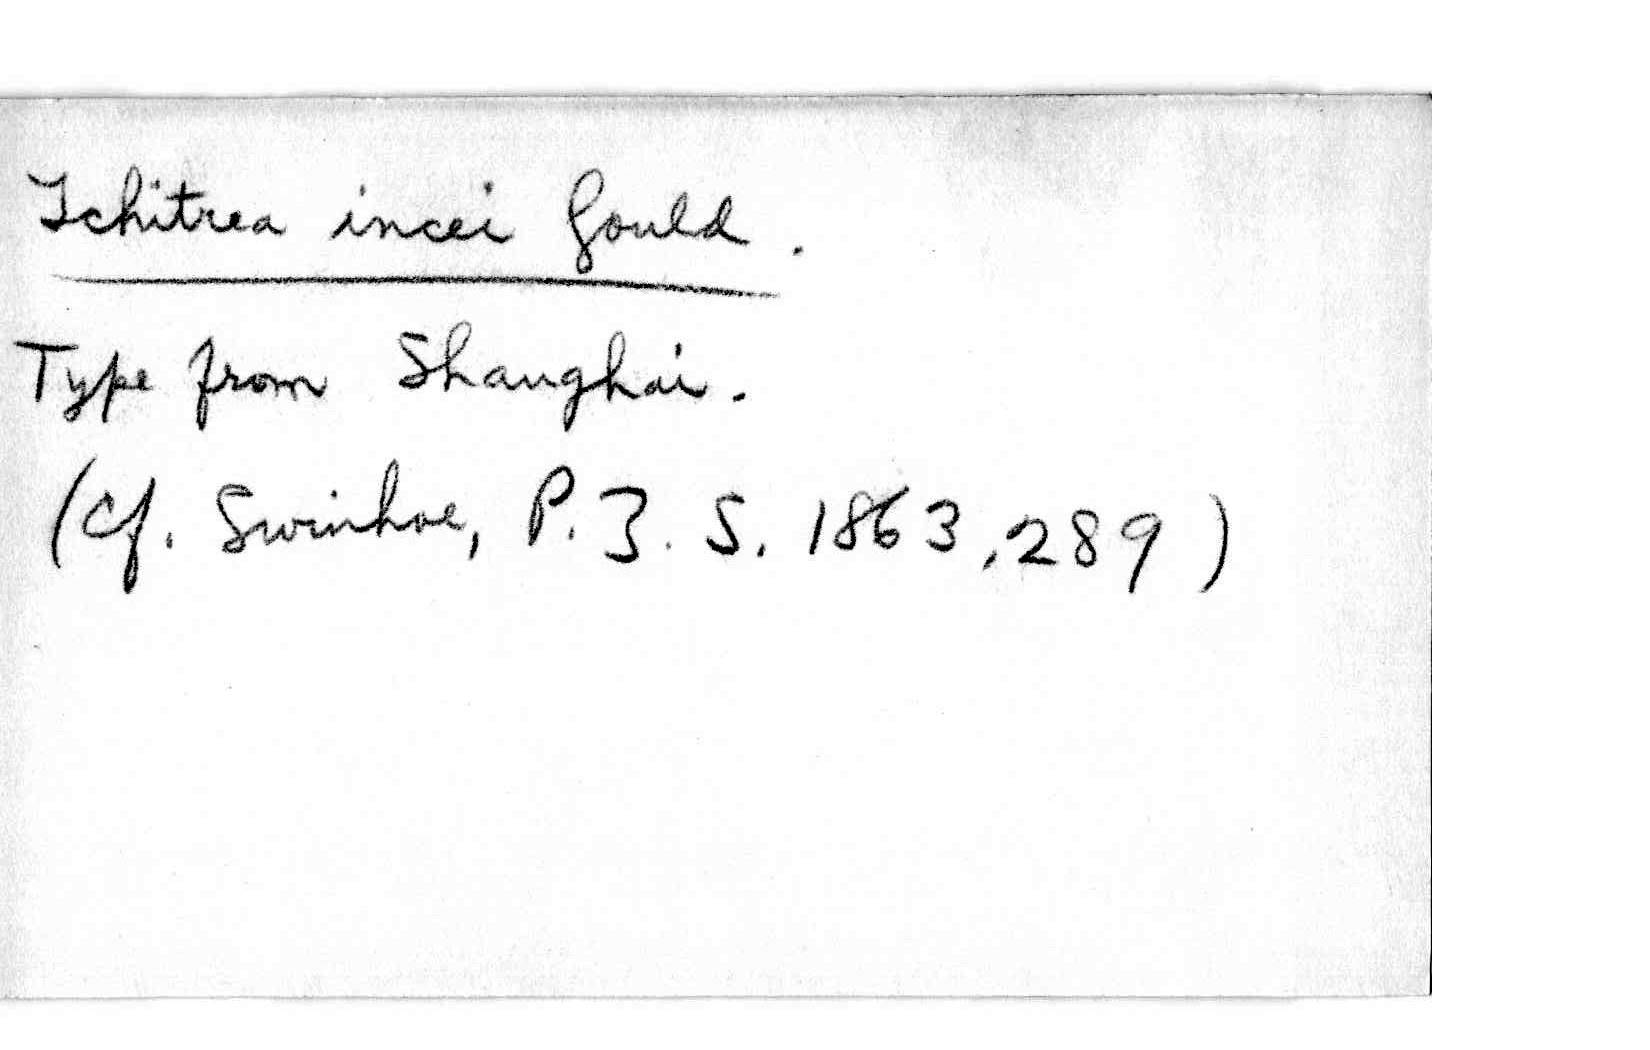 Tchitrea incei Gould.
Type from Shanghai.
(cf. Swinhoe, P. Z. S. 1863, 289)